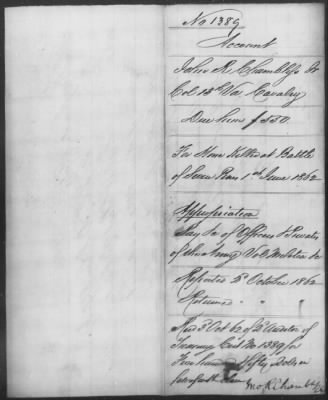 No 1389
Account
John R Chambliss Jr
Col 13th Va Cavalry
Due him $550
For Horse Killed at Battle
of Seven Pines 1st June 1862
Appropriation
Pay &c of Officers & Privates
of the Army Vols Militia &c
Reported 3d October 1862
Returned " "
Recd 3 Oct 62 of 2d Auditor of
Treasury Cert No 1389 for
Five hundred & fifty Dollars
Jno R Chambliss Jr